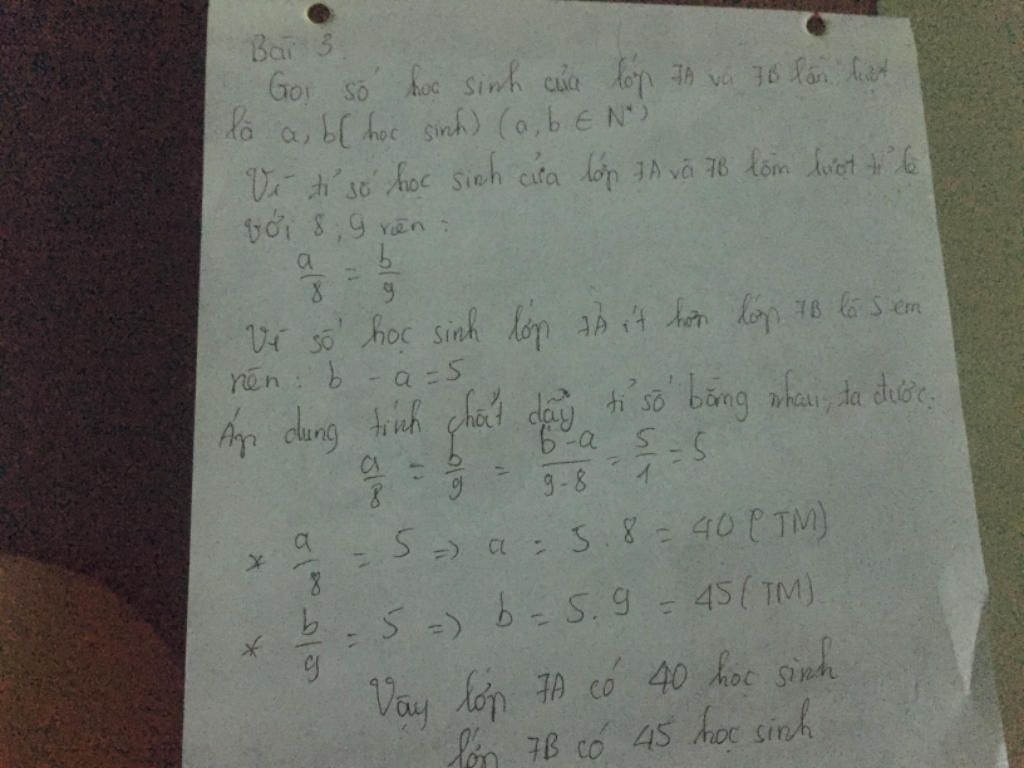 Bài 3.
Gọi số học sinh của lớp 7A và 7B lần lượt
là a, b (học sinh) (a, b ∈ N*)
Vì tỉ số học sinh của lớp 7A và 7B lần lượt tỉ lệ
với 8; 9 nên:
a/8 = b/9
Vì số học sinh lớp 7A ít hơn lớp 7B là 5 em
nên: b - a = 5
Áp dụng tính chất dãy tỉ số bằng nhau, ta được:
a/8 = b/9 = (b-a)/(9-8) = 5/1 = 5
* a/8 = 5 => a = 5.8 = 40 (TM)
* b/9 = 5 => b = 5.9 = 45 (TM)
Vậy lớp 7A có 40 học sinh
lớp 7B có 45 học sinh